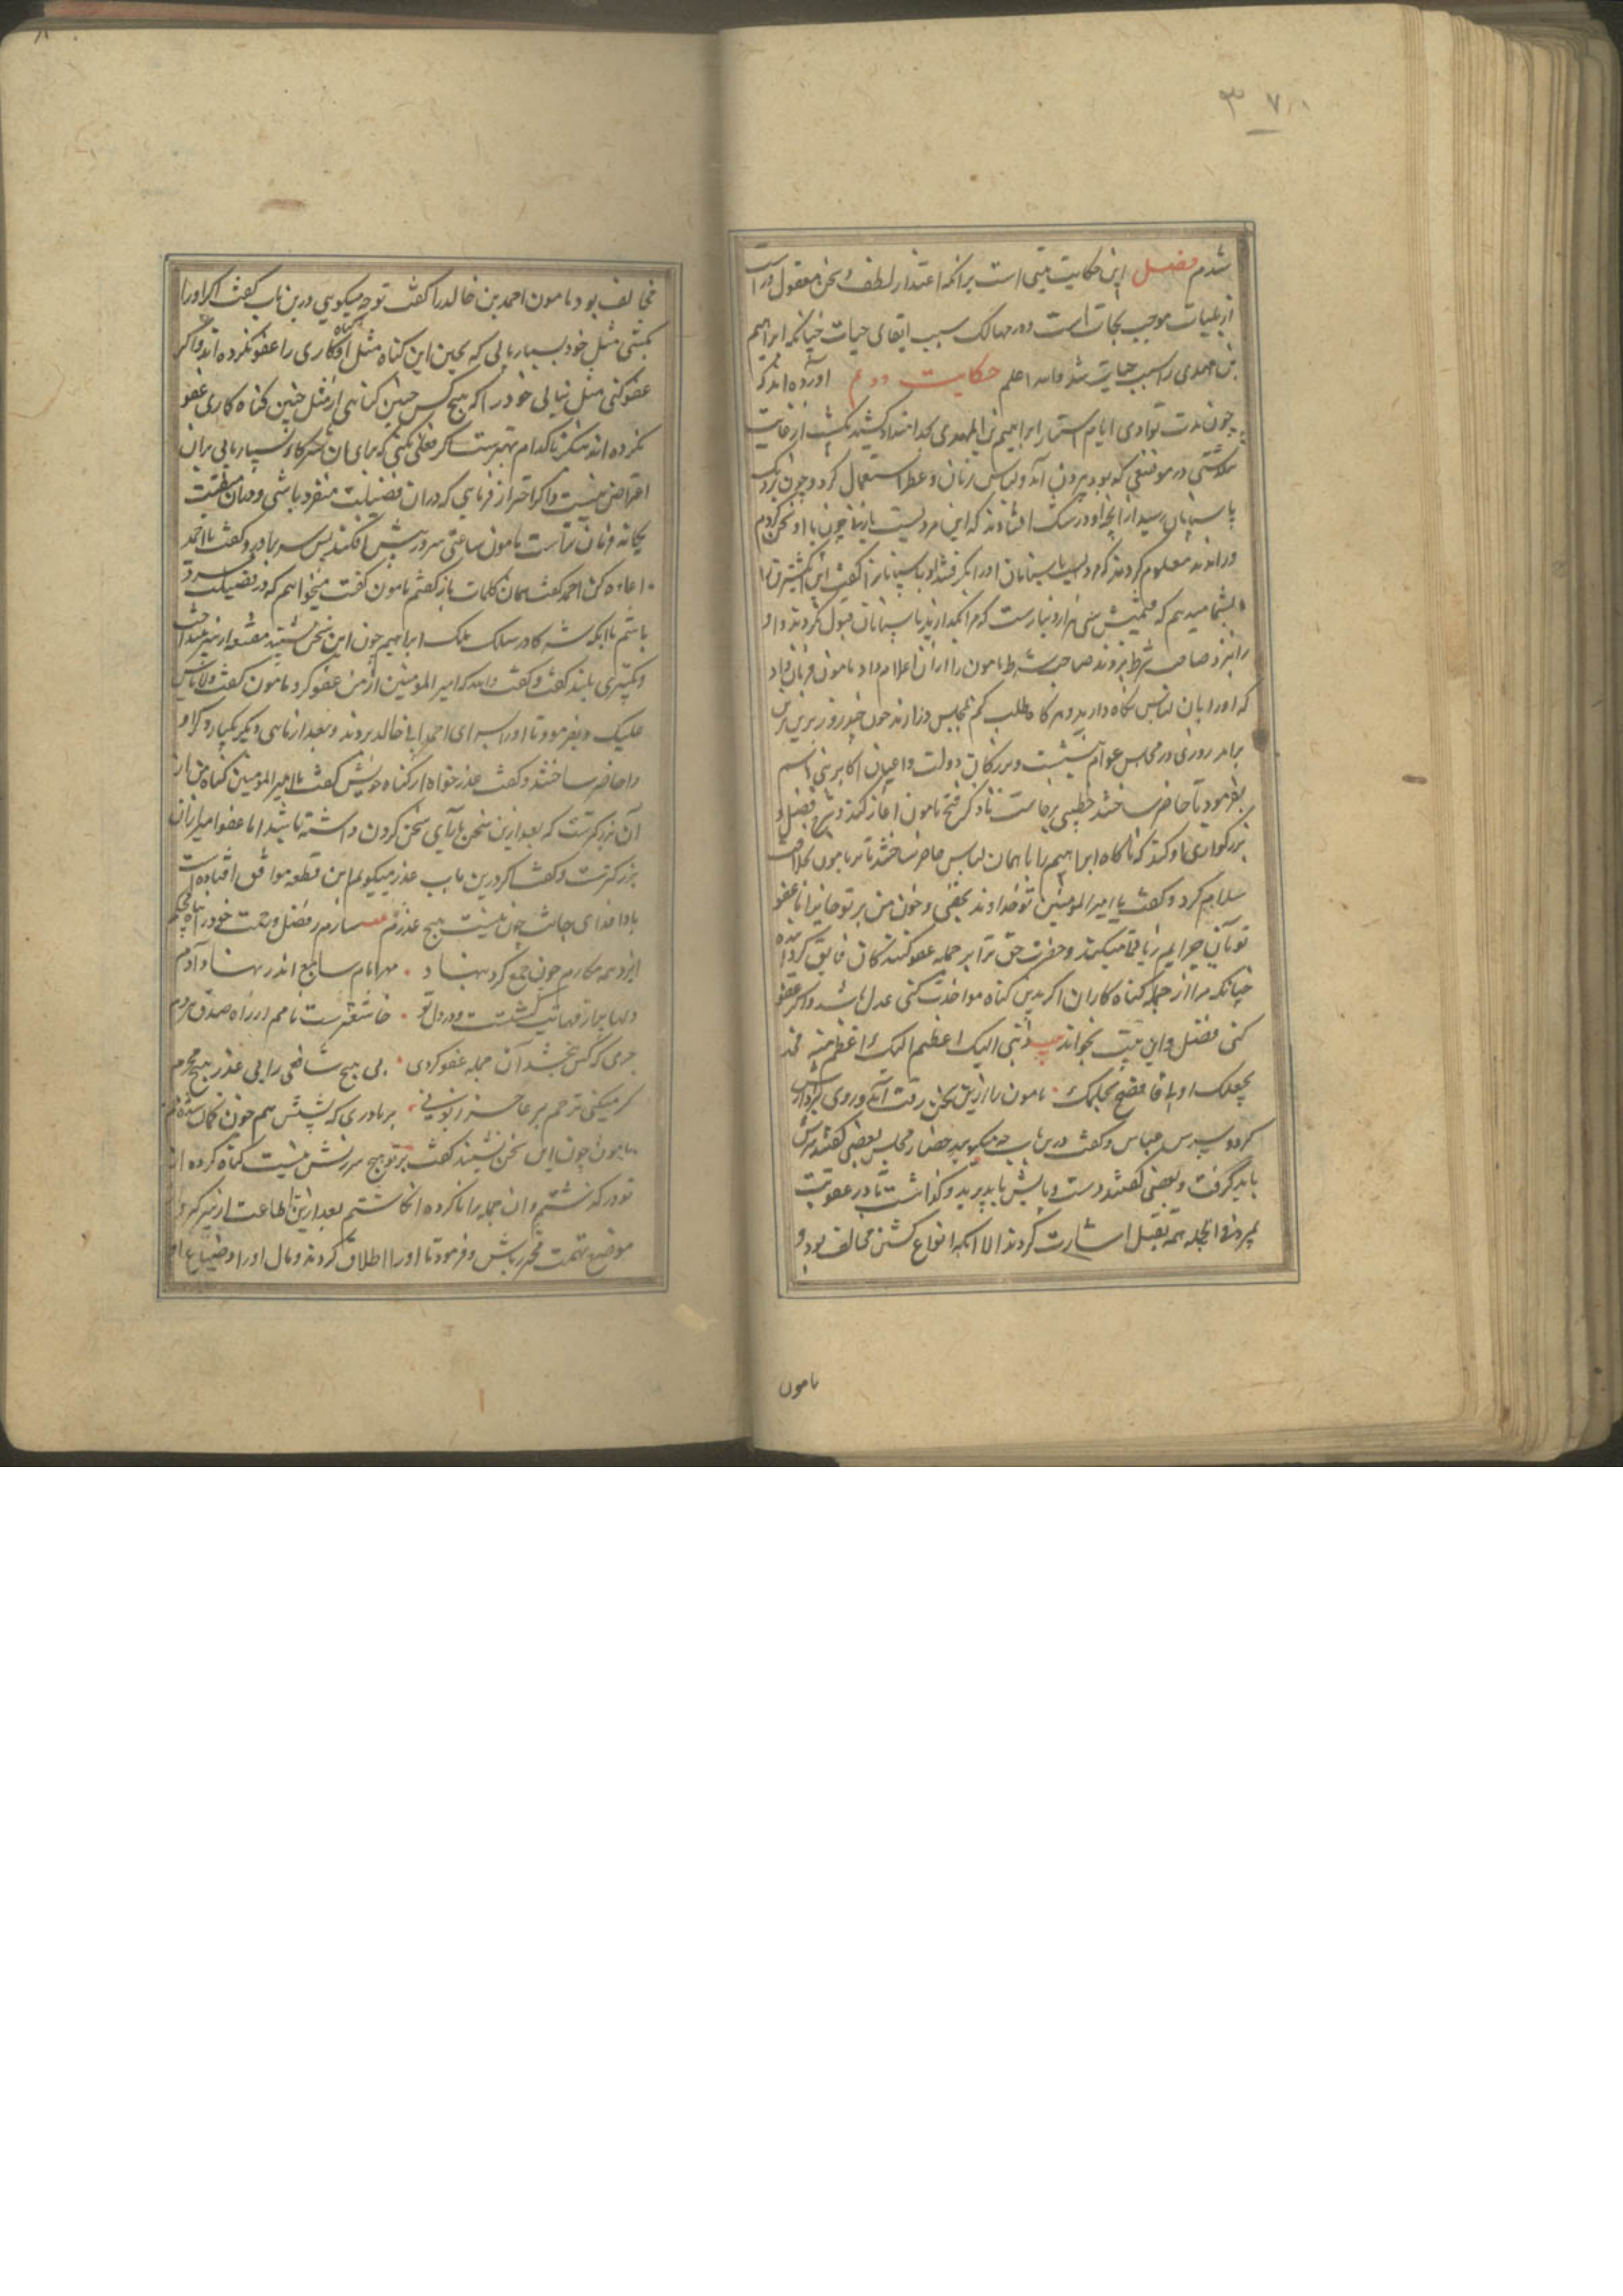 ۳۷۸
شدم فصل این حکایت مبنی است برانکه اعتذار لطف و سخن معقول در است
از بلیات موجب نجات است و در مهالک سبب ابقای حیات چنانکه ابراهیم
بن مهدی را سبب حیات شد والله اعلم حکایت دوم آورده اند که
چون مدت تواری ایام استتار ابراهیم بن المهدی بامتداد کشید یکشب از غایت
دلتنکی در موضعی که بود بیرون آمد و لباس زنان و عطر استعمال کرد و چون نزدیک
پاسبانان رسید از رایحه او در شک افتادند که این مرد نیست یا زن چون با او سخن کردم
دراندند معلوم کردند که مردیست پاسبانان اورا بگرفتند او پاسبانانرا گفت این انگشتری را
بشما میدهم که قیمتش سی هزار دینارست که مرا بگذارید پاسبانان قبول نکردند و او
را نزد صاحب شرط بردند صاحب شرط مامون را ازان اعلام داد مامون فرمان داد
که اورا بان لباس نگاه دارید و هرگاه طلب کنم بمجلس در ارند چون چند روز برین
برامد روزی در مجلس عوام بنشست و بزرکان دولت و اعیان اکابر بنی هاشم
بفرمود تا حاضر ساختند خطیبی برخاست تا ذکر فتح مامون اغاز کند و شرح فضل و
بزرکواری او کند که ناکاه ابراهیم را با همان لباس حاضر ساختند تا بر مامون بخلافت
سلام کرد و گفت یا امیر المومنین تو خداوند بحقی و خون من بر تو مباح اما عفو
تو آن جرایم را نفی میکند و حضرت حق ترا بر جمله عفو کنندکان فایق کردانیده
چنانکه مرا از جمله کناه کاران اگر بدین کناه مواخذت کنی عدل باشد و اگر عفو
کنی فضل و این بیت بخواند بیت ذنبی الیک اعظیم الیک و اعظم منه فخذ
بحقک او لا فاصفح بحلمک مامون را ازین سخن رقت آمد و روی بپسرش
کرد و پسرش عباس و گفت درین باب چه میکویید حضار مجلس بعضی گفتند سرش
باید گرفت و بعضی گفتند دست و پایش باید برید و گذاشت تا در عقوبت
بمیرد فی الجمله همه بقتل اشارت کردند الا انکه انواع کشتن مخالف بود و
مامون
مخالف بود مامون احمد بن خالد را گفت تو چه میکویی درین باب گفت اگر اورا
بکشی مثل خود بسیار یابی که بچنین کناه مثل او کناه کاری را عفو نکرده اند و اگر
عفو کنی مثل نیابی خود را که هیچ کس چنین کناهی از مثل چنین کناه کاری عفو
نکرده اند بنکر تا کدام بهترست اگر فعلی کنی که برای آن شرکا بسیار یابی بران
اعتراض نیست و اگر احتراز فرمایی که دران فضیلت منفرد باشی و دران منقبت
یکانه فرمان تراست مامون ساعتی سر در پیش افکند پس سر براورد و گفت یا احمد
اعاده کن احمد گفت همان کلمات باز گفتم مامون گفت میخواهم که در فضیلت مفرد
باشم با انکه شرکا در سلک ملک ابراهیم چون این سخن بشنید مقنعه از سر بینداخت
و تکبیری بلند گفت و گفت والله که امیر المومنین از من عفو کرد مامون گفت لا باس
علیک و بفرمود تا اورا بسرای احمد ابی خالد بردند و بعد از ماهی دیکر یکبار دیکر او
را حاضر ساختند و گفت عذر خواه از کناه خویش گفت یا امیر المومنین کناه من از
آن بزرکترست که بعد ازین سخن یارای سخن کردن داشته باشد اما عفو امیر ازان
بزرکترست و گفت اگر درین باب عذر میکویم این قطعه موافق افتاده است
بادا فدای جانت چون نیست هیچ عذرم سازم ز فضل و رحمت خود را پناه محکم
ایزد همه مکارم چون جمع کرد بنهاد مهر امام سابع اندر نهاد آدم
دلها پر از مهابت گشت و در دل تو خاشعترست نامم از راه صدق مردم
جرمی که کس نبخشد آن جمله عفو کردی بی هیچ شافعی را بی عذر هیچ مجرم
کر میکنی ترحم بر عاجز زبونی بر مادری که پشتش هم چون کمان شده خم
مامون چون این سخن بشنید گفت بر تو هیچ سرزنش نیست کناه کرده از
تو در گذشتم و ان جمله را ناکرده انکاشتم بعد ازین اطاعت از سر گیر و از
موضع تهمت محترز باش و فرمود تا اورا اطلاق کردند و مال اورا و ضیاع او